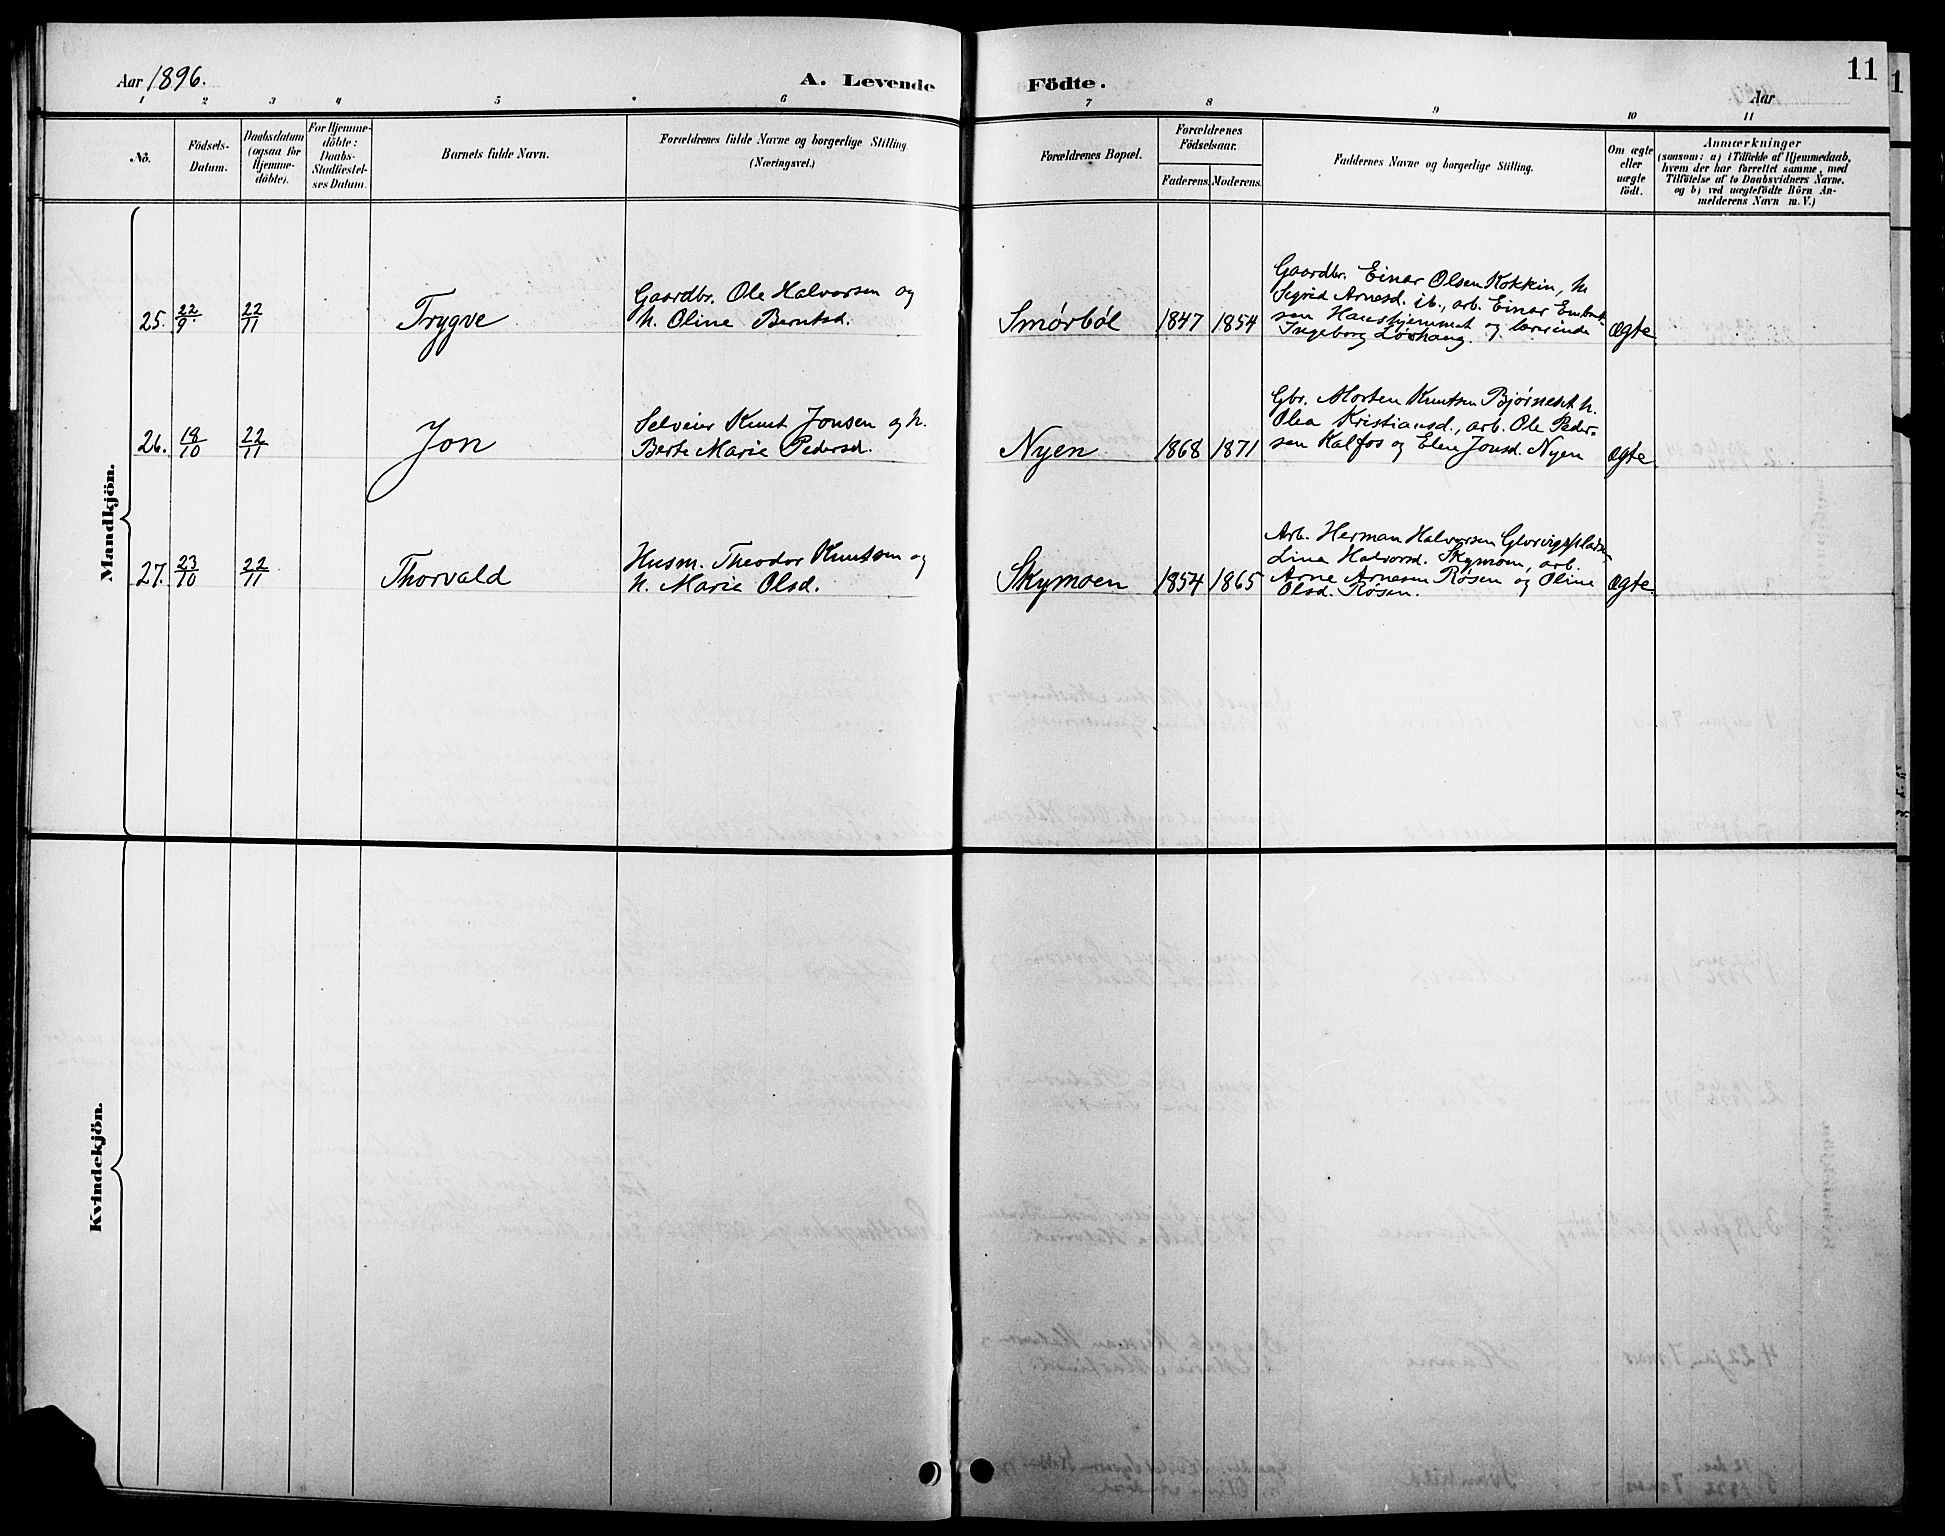 Aar 1896.
A. Levende Födte.
11
Aar
1 2 3 4 5 6 7 8 9 10 11
Nö.
Födsels-
Datum.
Daabsdatum
(ogsaa for
Hjemme-
döbte).
For Hjemme-
döbte:
Daabs-
Stadfæstel-
ses Datum.
Barnets fulde Navn.
Forældrenes fulde Navne og borgerlige Stilling
(Næringsvei.)
Forældrenes Bopæl.
Forældrenes
Födselsaar.
Faderens. Moderens.
Faddernes Navne og borgerlige Stilling.
Om ægte
eller
uægte
födt.
Anmærkninger
(saasom: a) i Tilfælde af Hjemmedaab,
hvem der har forrettet samme, med
Tilföielse af to Daabsvidners Navne,
og b) ved uægtefödte Börn An-
melderens Navn m. V.)
Mandkjön.
25. 22/9. 22/11 Trygve
Gaardbr. Ole Halvorsen og
h. Oline Berntsd.
Smørbøl 1847 1854
Gaardbr. Einar Olsen Kokkin, h.
Sigrid Arnesd. ib., arb. Einar Embret-
sen Hanshjemmet og lærerinde
Ingeborg Løvhaug.
ægte.
26. 18/10 22/11 Jon
Selveier Knut Jonsen og h.
Berte Marie Pedersd.
Nyen 1868 1871
Gbr. Morten Knutsen Bjørneset h.
Olea Kristiansd., arb. Ole Peder-
sen Kalfos og Elen Jonsd. Nyen
ægte.
27. 23/10 22/11 Thorvald
Husm. Theodor Knutsen og
h. Marie Olsd.
Skymoen 1854 1865
Arb. Herman Halvorsen
Lina Halvorsd. Skymoen, arb.
Arne Arnesen Røsen og Oline
Olsd. Røsen.
ægte.
Kvindekjön.